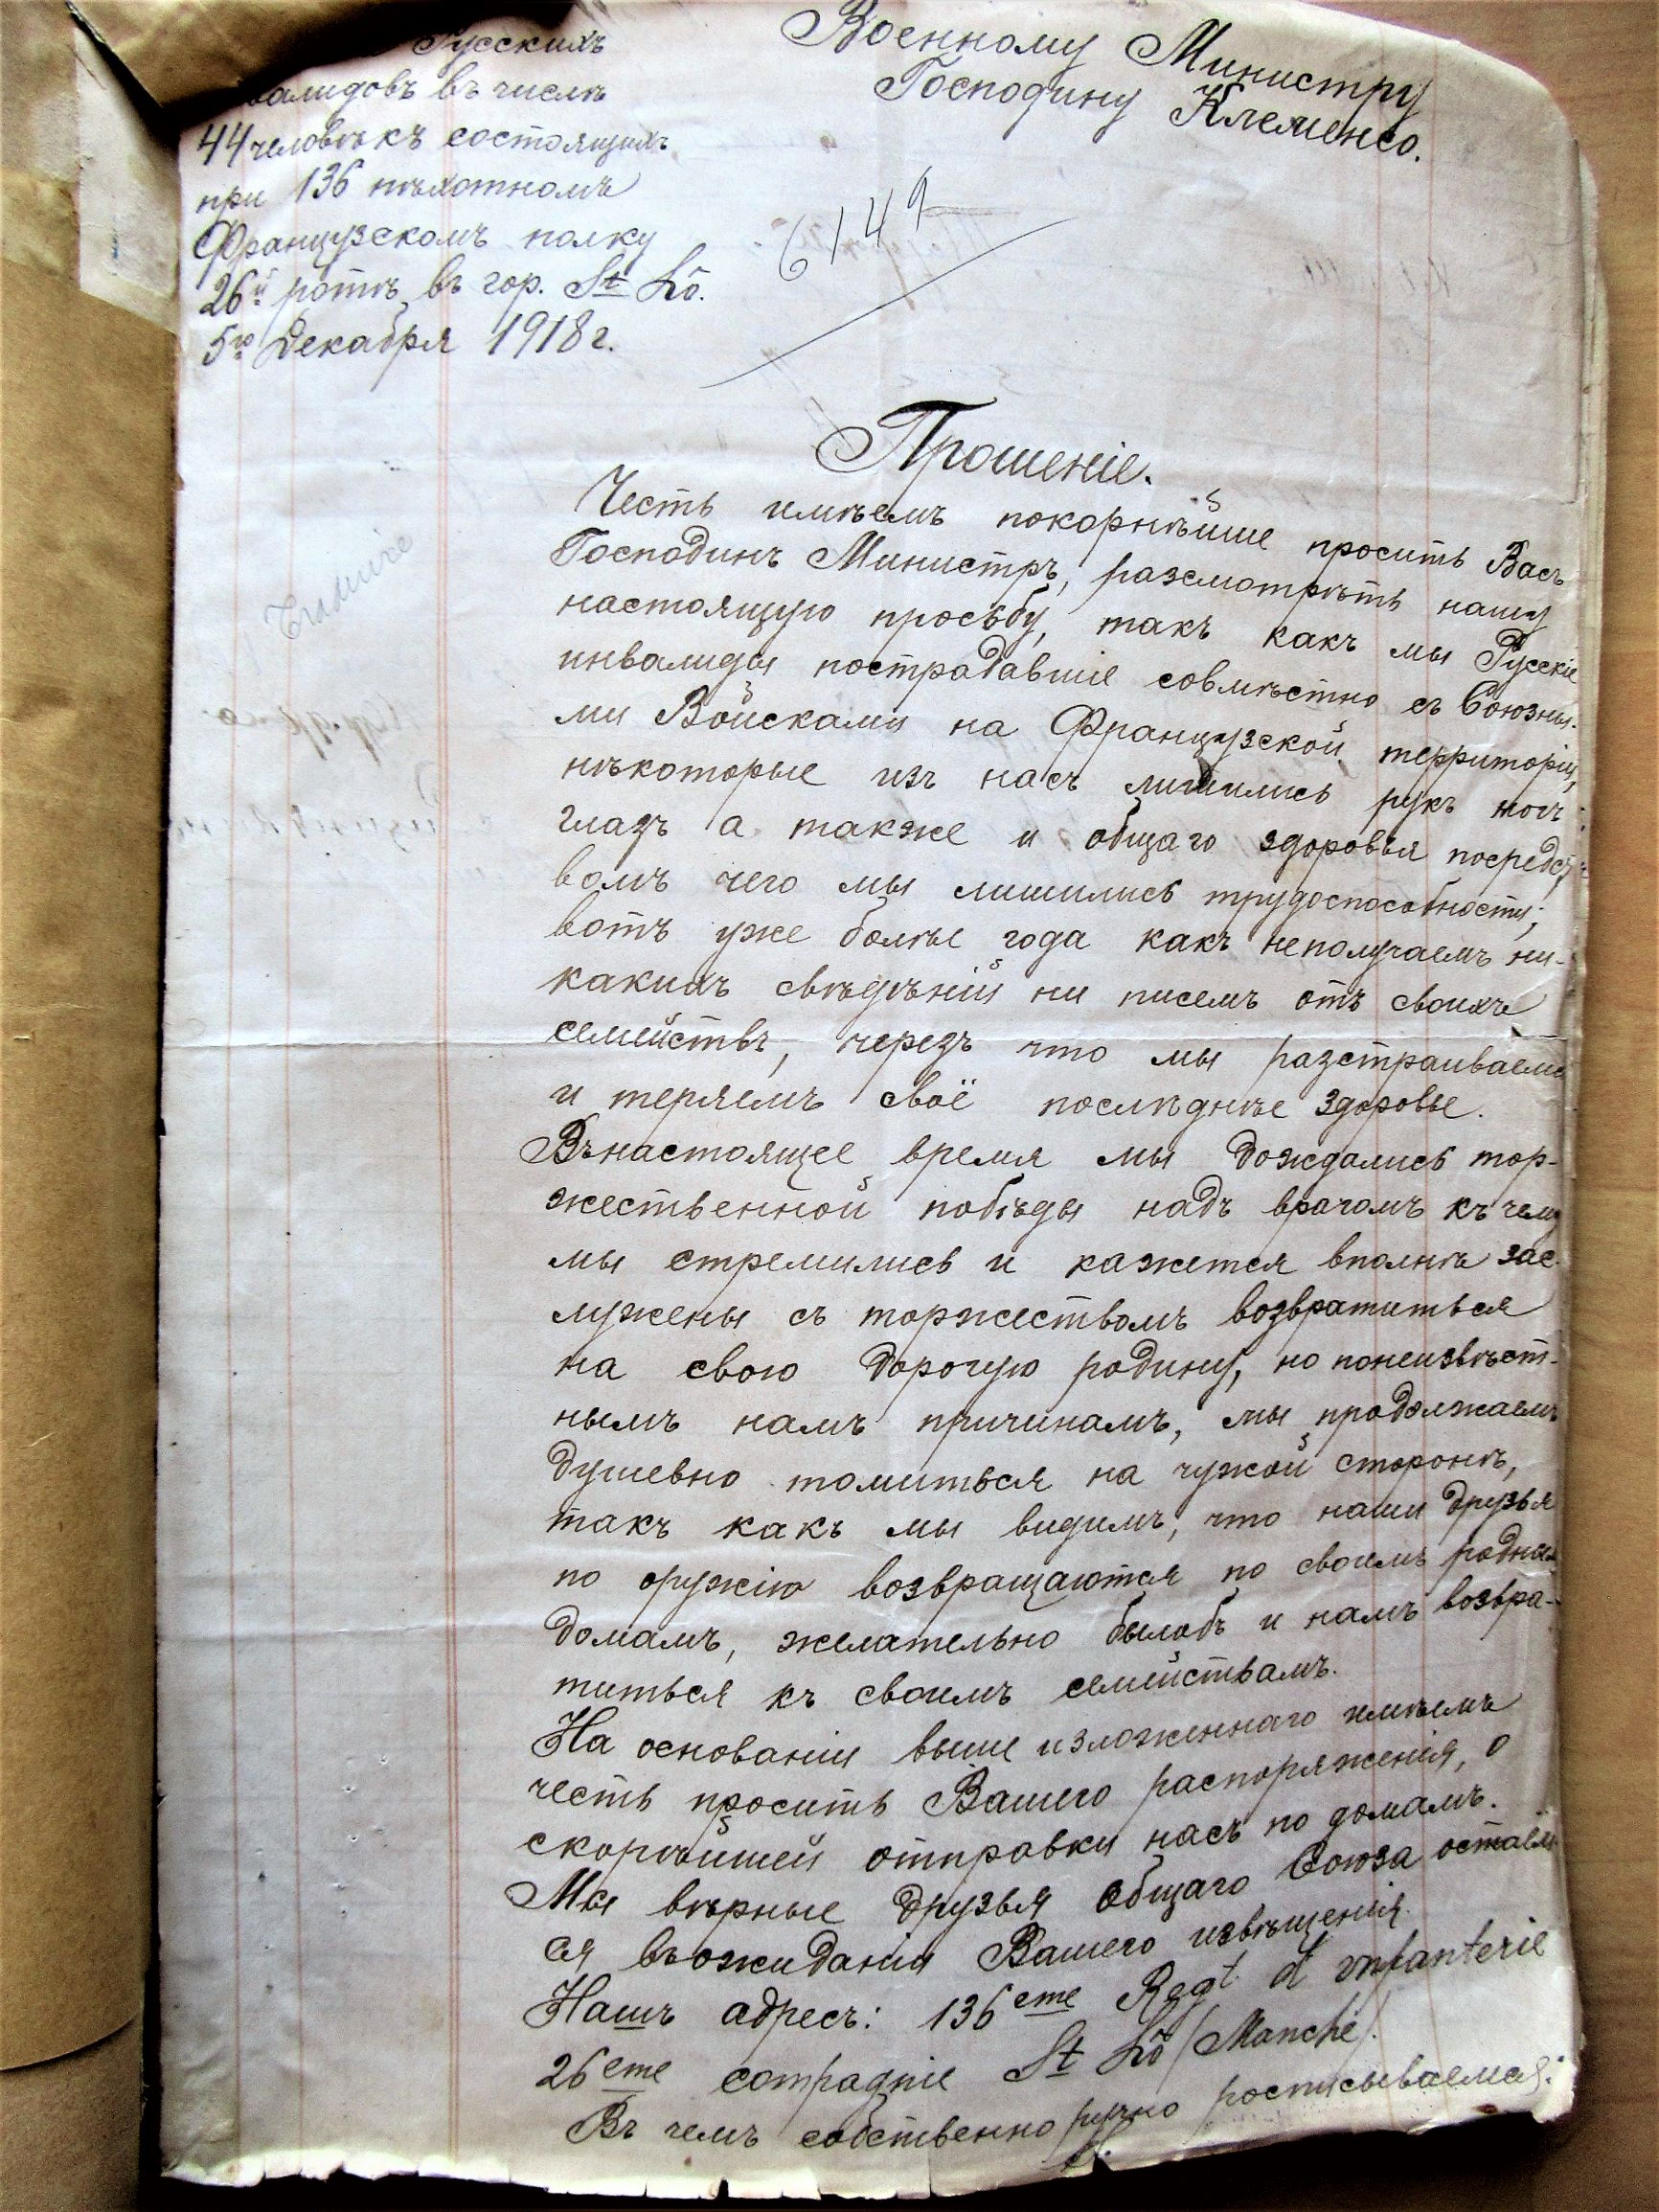 Русскихъ
валидовъ въ числѣ
44 человѣкъ состоящихъ
при 136 пѣхотномъ
Французскомъ полку
26й ротѣ въ гор. St Lô.
5го Декабря 1918 г.
Военному Министру
Господину Клеменсо.
6149
Прошеніе.
Честь имѣемъ покорнѣйше просить Васъ
Господинъ Министръ, разсмотрѣть нашу
настоящую просьбу, такъ какъ мы Русскіе
инвалиды пострадавшіе совмѣстно съ Союзны-
ми Войсками на Французской территоріи,
нѣкоторые изъ насъ лишились рукъ ногъ
глазъ а также и общаго здоровья посредст
вомъ чего мы лишились трудоспособности;
вотъ уже болѣе года какъ неполучаемъ ни-
какихъ свѣдѣній ни писемъ отъ своихъ
семействъ, черезъ что мы разстраиваемс
и теряемъ своё послѣднѣе здоровье.
Въ настоящее время мы дождались тор-
жественной побѣды надъ врагомъ къ чему
мы стремились и кажется вполнѣ зас-
лужены съ торжествомъ возвратиться
на свою дорогую родину, но понеизвѣст-
нымъ намъ причинамъ, мы продолжаемъ
душевно томиться на чужой сторонѣ,
такъ какъ мы видимъ, что наши друзья
по оружію возвращаются по своимъ родны
домамъ, желательно былобъ и намъ возвра-
титься къ своимъ семействамъ.
На основаніи выше изложеннаго имѣемъ
честь просить Вашего распоряженія, о
скорѣйшей отправки насъ по домамъ.
Мы вѣрные друзья общаго Союза остаём
ся въ ожиданіи Вашего извѣщенія.
Нашъ адресъ: 136 eme Regt d'infanterie
26 eme compagnie St Lô /Manche/.
Въ чемъ собственноручно росписываемся: